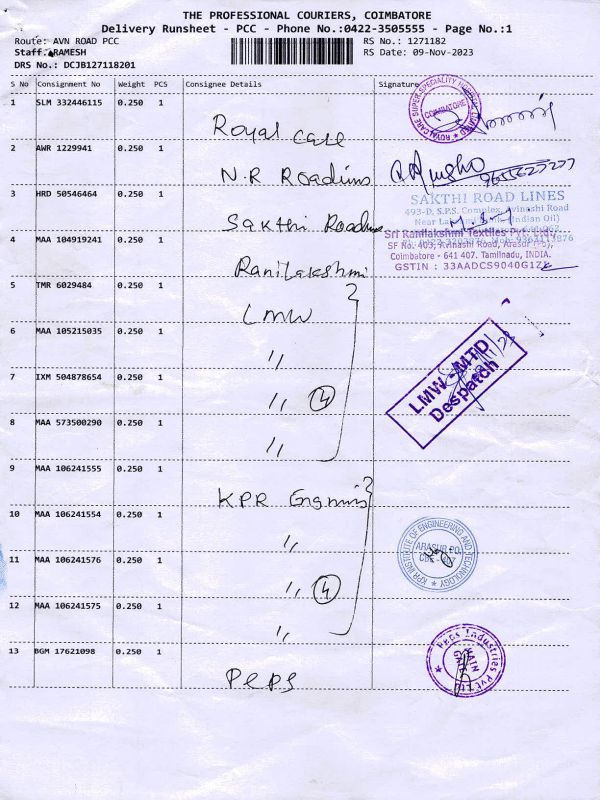 THE PROFESSIONAL COURIERS, COIMBATORE
Delivery Runsheet - PCC - Phone No.:0422-3505555 - Page No.:1
Route: AVN ROAD PCC
RS No.: 1271182
Staff.:RAMESH
RS Date: 09-Nov-2023
DRS No.: DCJB127118201
S No Consignment No Weight PCS Consignee Details Signature
1 SLM 332446115 0.250 1
Royal care
COIMBATORE
2 AWR 1229941 0.250 1
N.R Roadlins
3 HRD 50546464 0.250 1
Sakthi Roadlins
SAKTHI ROAD LINES
493-D, S.P.S. Complex, Avinashi Road
4 MAA 104919241 0.250 1
Ranilakshmi
Sri Ranilakshmi Textiles Pvt. Ltd.,
SF No. 403, Avinashi Road, Arasur (Po),
Coimbatore - 641 407. Tamilnadu, INDIA.
GSTIN : 33AADCS9040G1ZK
5 TMR 6029484 0.250 1
LMW
6 MAA 105215035 0.250 1
〃
7 IXM 504878654 0.250 1
〃 4
LMW - MTD
Despatch
8 MAA 573500290 0.250 1
〃
9 MAA 106241555 0.250 1
KPR
10 MAA 106241554 0.250 1
〃
KPR INSTITUTE OF ENGINEERING AND TECHNOLOGY
ARASUR PO.
11 MAA 106241576 0.250 1
〃 4
12 MAA 106241575 0.250 1
〃
13 BGM 17621098 0.250 1
Peps
Peps Industries Pvt Ltd